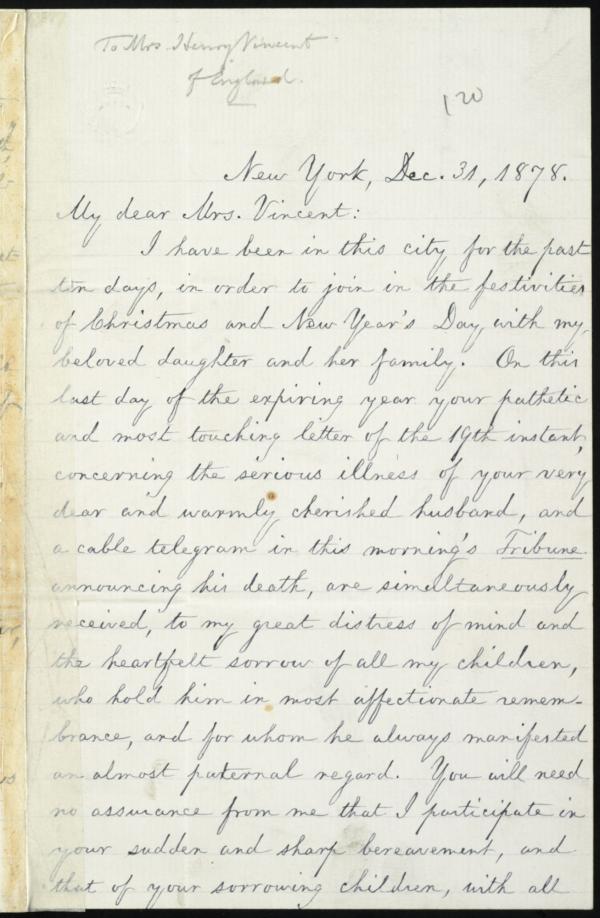 To Mrs. Henry Vincent
of England.
120
New York, Dec. 31, 1878.
My dear Mrs. Vincent:
I have been in this city for the past
ten days, in order to join in the festivities
of Christmas and New Year's Day with my
beloved daughter and her family. On this
last day of the expiring year your pathetic
and most touching letter of the 19th instant,
concerning the serious illness of your very
dear and warmly cherished husband, and
a cable telegram in this morning's Tribune
announcing his death, are simultaneously
received, to my great distress of mind and
the heartfelt sorrow of all my children,
who hold him in most affectionate remem-
brance, and for whom he always manifested
an almost paternal regard. You will need
no assurance from me that I participate in
your sudden and sharp bereavement, and
that of your sorrowing children, with all